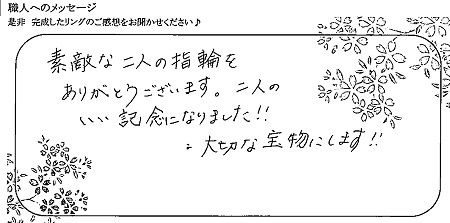 職人へのメッセージ
是非 完成したリングのご感想をお聞かせください♪
素敵な二人の指輪を
ありがとうございます。二人の
いい記念になりました!!
大切な宝物にします!!